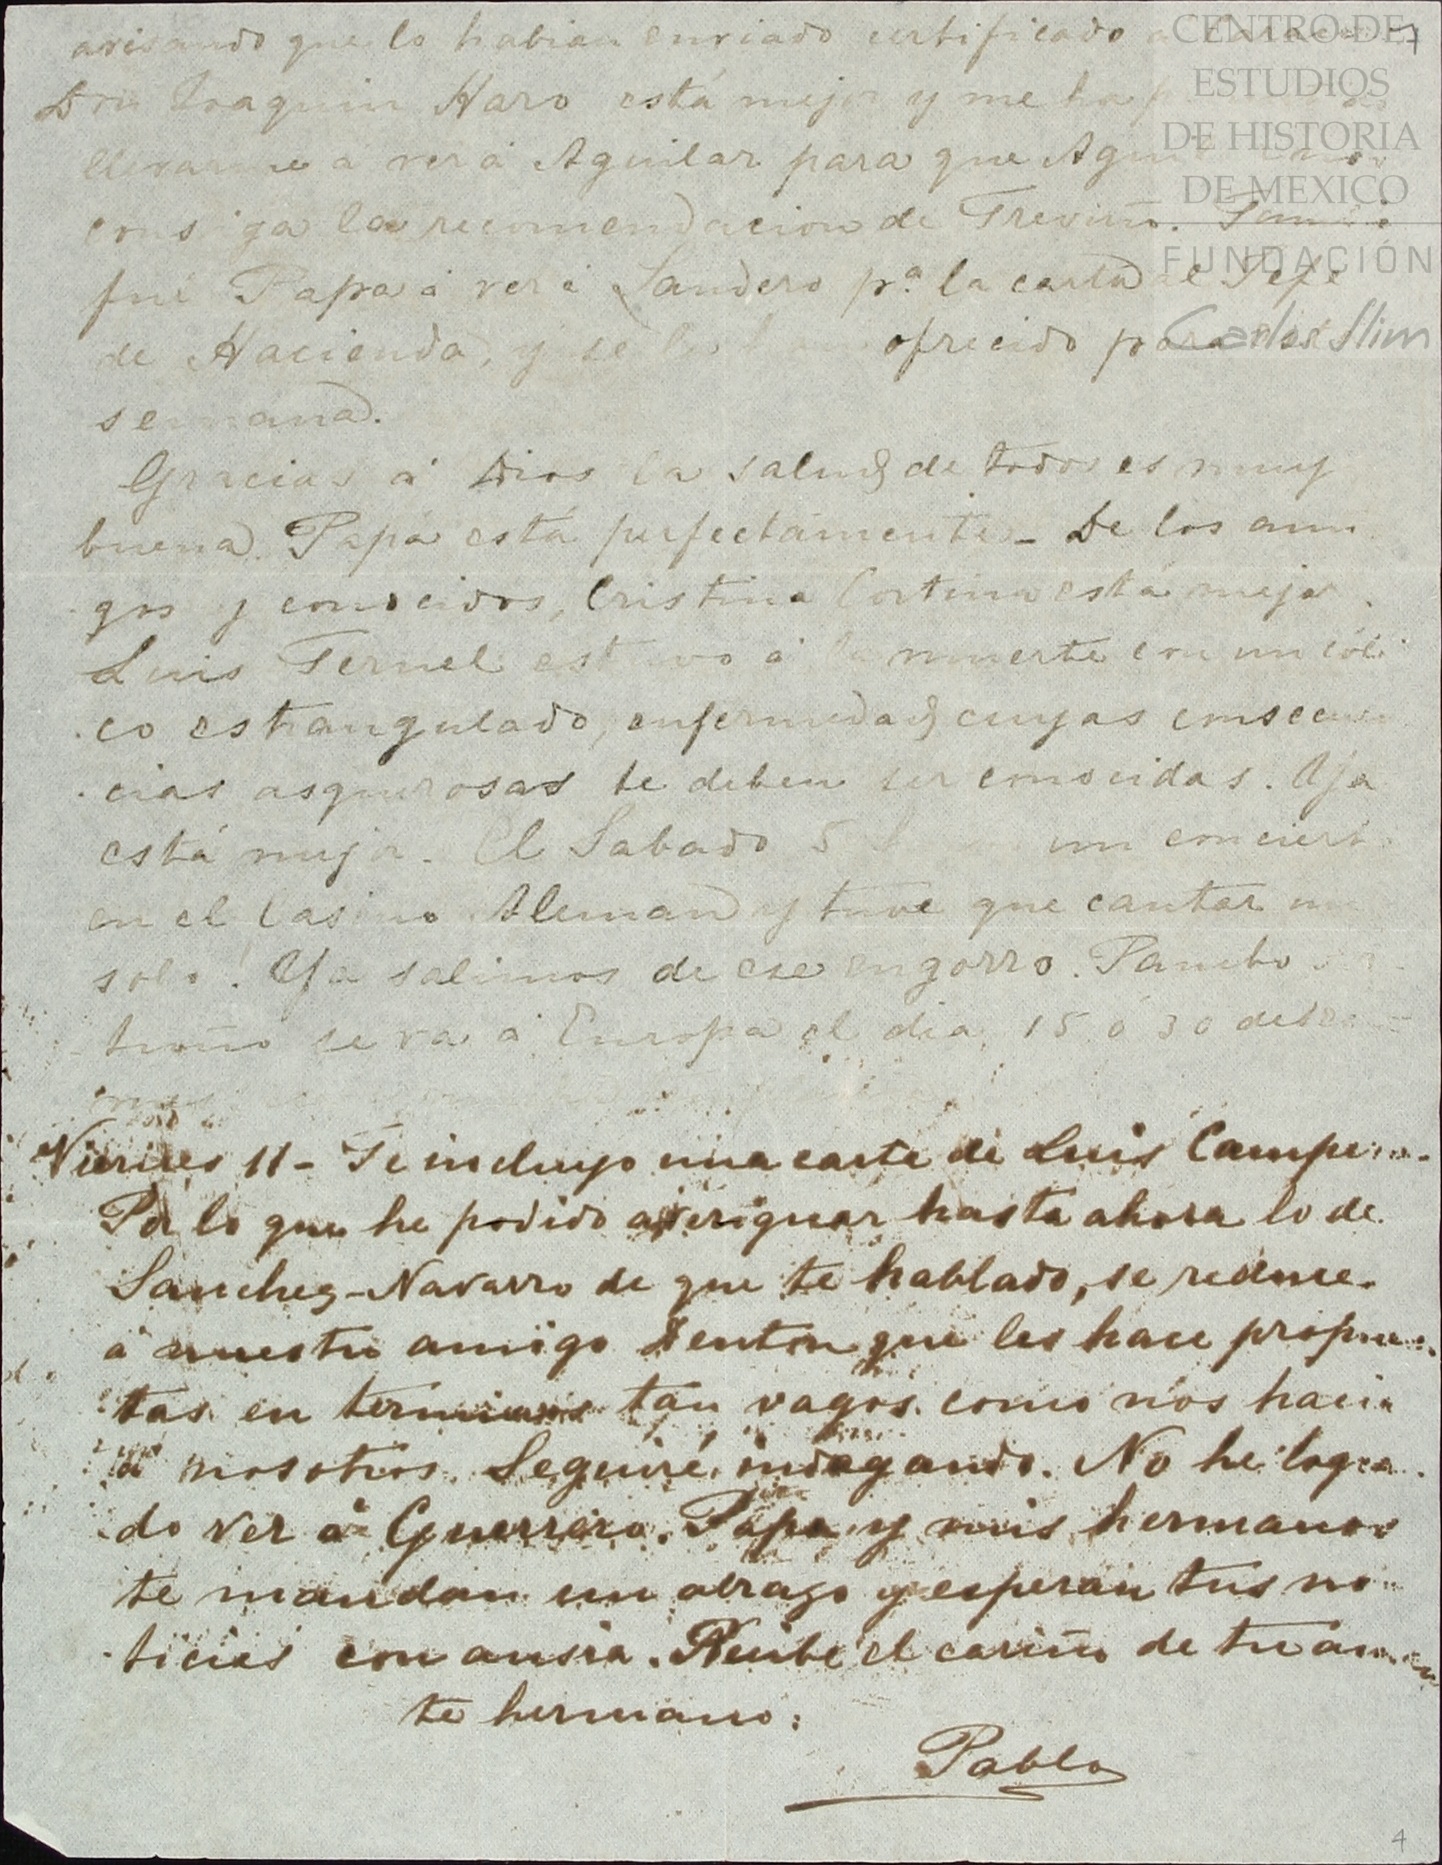 avisando que lo habian enviado certificado a
Don Joaquin Haro está mejor y me ha
llevarme á ver á Aguilar para que
consiga la recomendacion de Treviño.
fué Papá á ver á Landero pª la carta al Jefe
de Hacienda, y se ofrecido para
semana.
Gracias á Dios la salud de todos es muy
buena. Papá está perfectamente_ De los ami
gos y conocidos, Cristina Cortina está mejor.
Luis Teruel estuvo á la muerte con un cóli
co estrangulado, enfermedad cuyas consecuen
cias asquerosas te deben ser conocidas. Ya
está mejor. El Sabado 5 un concierto
en el Casino Aleman y tuve que cantar un
solo! Ya salimos de ese engorro. Pancho
troño se va á Europa el dia 15 ó 30 de
mes
Viernes 11- Te incluyo una carta de Luis Campe
Por lo que he podido averiguar hasta ahora lo de
Sanchez-Navarro de que te hablado, se reduce
á nuestro amigo Denton que les hace propues
tas en terminos tan vagos como nos hacia
á nosotros. Seguiré indagando. No he logra
do ver á Guerrero. Papá y mis hermanos
te mandan un abrazo y esperan tus no
ticias con ansia. Recibe el cariño de tu aman
te hermano:
Pablo
4
CENTRO DE
ESTUDIOS
DE HISTORIA
DE MEXICO
FUNDACIÓN
Carlos Slim